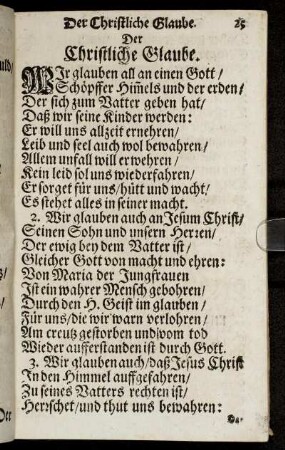 Der Christliche Glaube. 25
Der
Christliche Glaube.
WIr glauben all an einen Gott/
Schöpffer Him̄els und der erden/
Der sich zum Vatter geben hat/
Daß wir seine Kinder werden:
Er will uns allzeit ernehren/
Leib und seel auch wol bewahren/
Allem unfall will er wehren/
Kein leid sol uns wiederfahren/
Er sorget für uns/hütt und wacht/
Es stehet alles in seiner macht.
2. Wir glauben auch an Jesum Christ/
Seinen Sohn und unsern Herren/
Der ewig bey dem Vatter ist/
Gleicher Gott von macht und ehren:
Von Maria der Jungfrauen
Ist ein wahrer Mensch gebohren/
Durch den H. Geist im glauben/
Für uns/die wir warn verlohren/
Am creutz gestorben und vom tod
Wieder aufferstanden ist durch Gott.
3. Wir glauben auch/daß Jesus Christ
In den Himmel auffgefahren/
Zu seines Vatters rechten ist/
Herrschet/und thut uns bewahren: